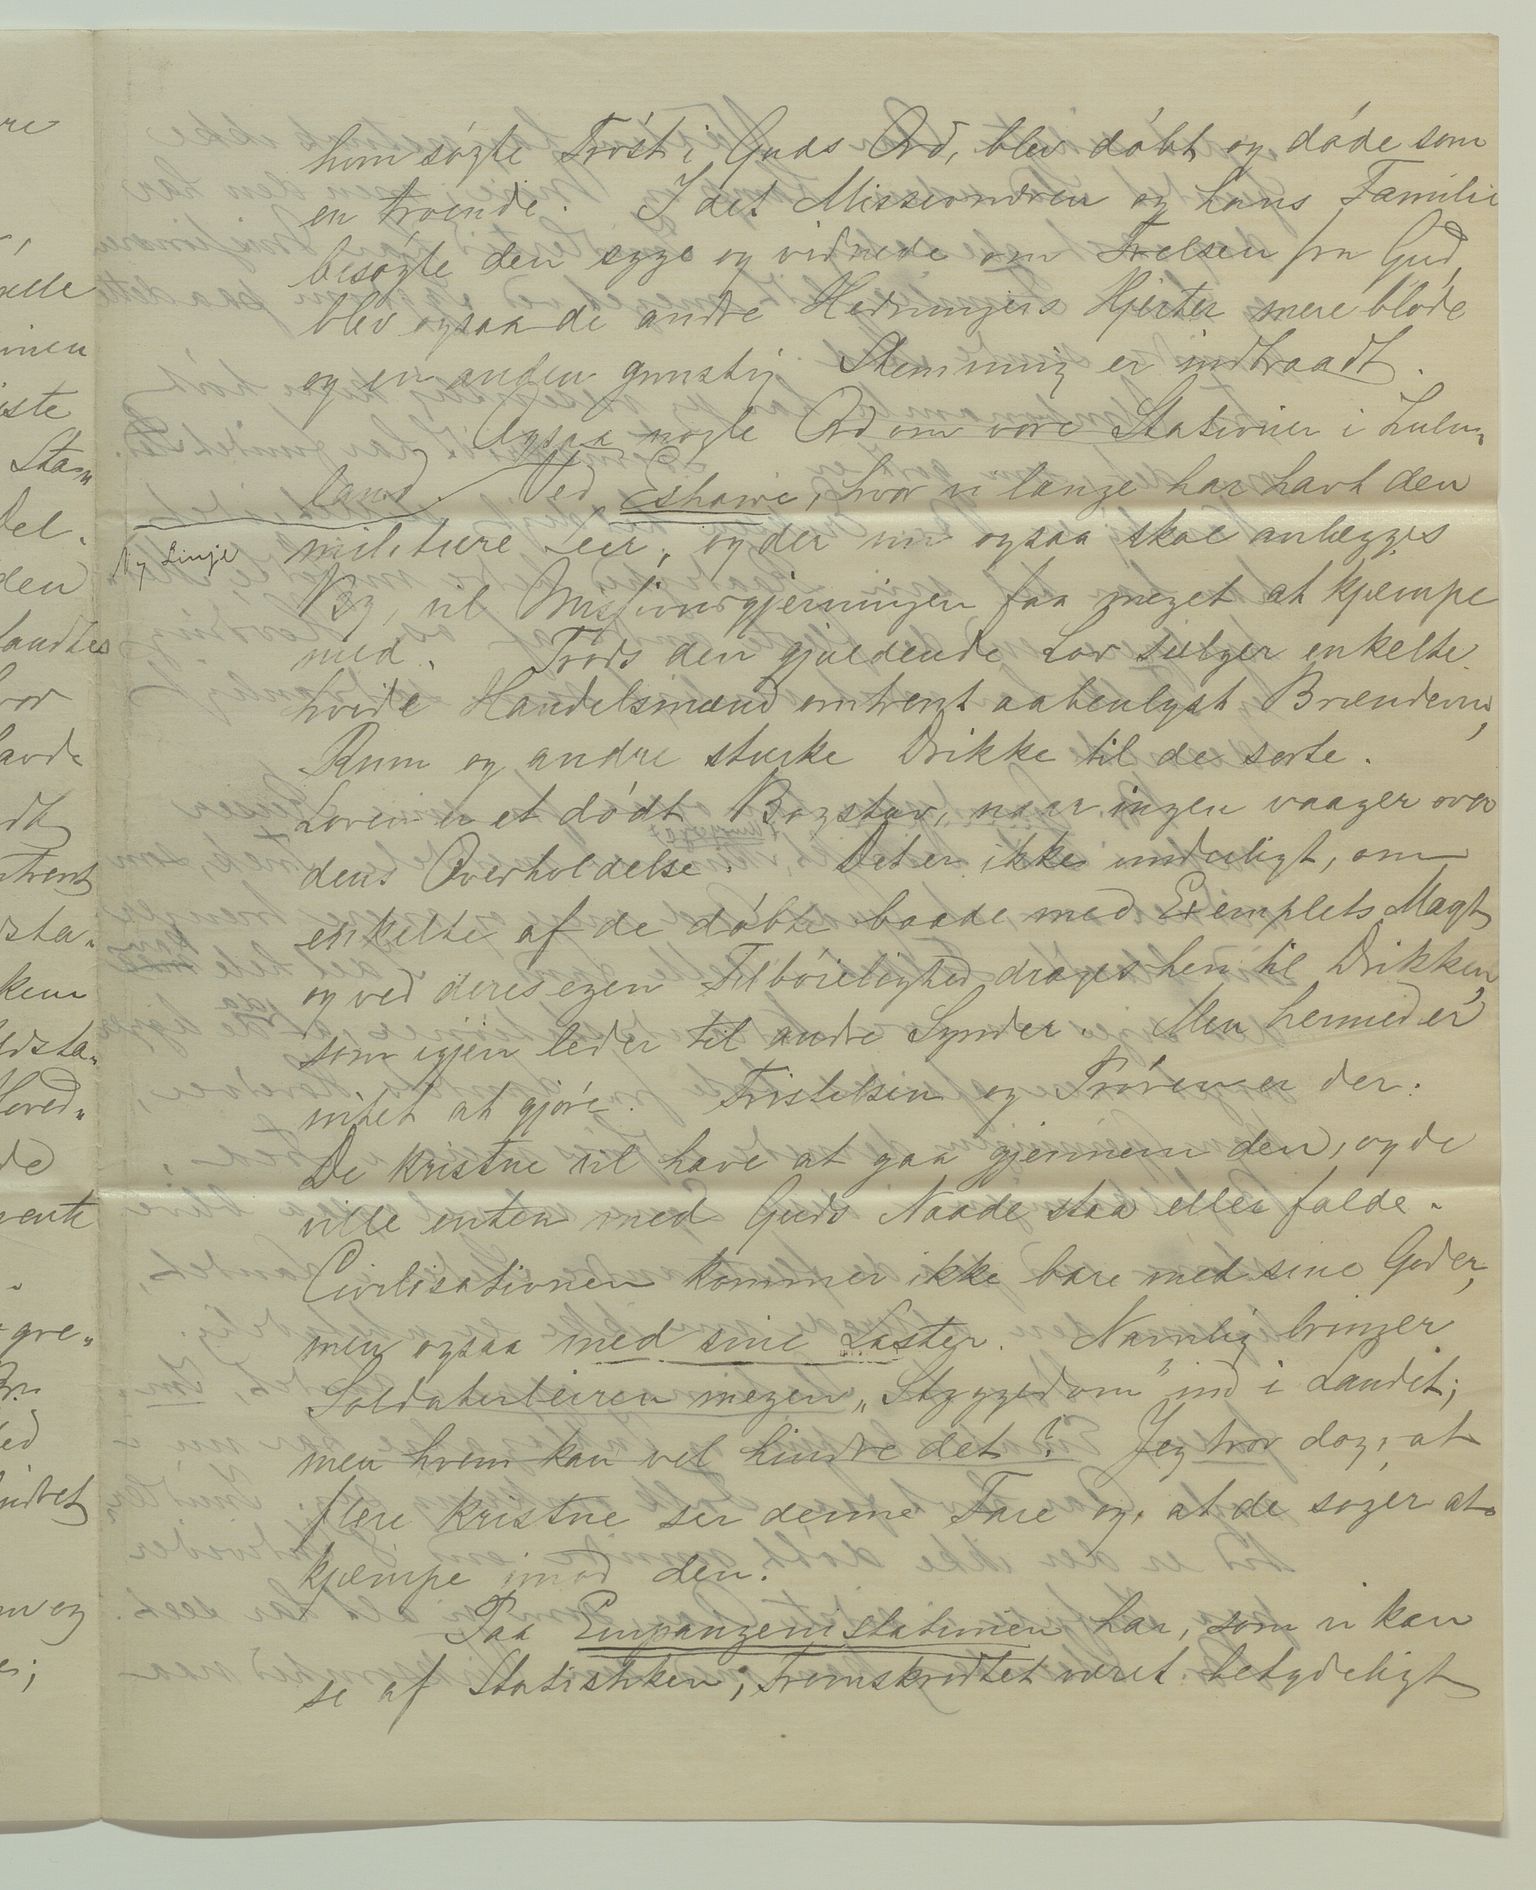 hum søgte Trøst i Guds Ord, blev døbt og døde som
en troende. I det Missionæren og hans Familie
besøgte den syge og vidnede om Frelsen fra Gud,
blev ogsaa de andre Hedningers Hjerter mere bløde
og en anden gunstig Stemning er indtraadt.
Ogsaa nogle Ord om vore Stationer i Zulu„
land. Ved Eshowe, hvor vi længe har havt den
Ny Linje
militære Leir, og der nu ogsaa skal anlægges
By, vil Missionsgjerningen faa meget at kjæmpe
med. Trods den gjældende Lov sælger enkelte
hvide Handelsmænd omtrent aabenlyst Brændevin,
Rum og andre stærke Drikke til de sorte.
Loven er et dødt Bogstav, naar ingen vaager over
dens Overholdelse. Det er ikke underligt, om
enkelte af de døbte baade med Exemplets Magt
og ved deres egen Tilbøielighed drages hen til Drikken,
som igjen leder til andre Synder. Men hermed er
intet at gjøre. Fristelsen og Prøven er der.
De kristne vil have at gaa gjennem den, og de
ville enten med Guds Naade staa eller falde.
Civilisationen kommer ikke bare med sine Goder,
men ogsaa med sine Laster. Navnlig bringer
Soldaterleiren megen „Styggedom” ind i Landet;
men hvem kan vel hindre det? Jeg tror dog, at
flere kristne ser denne Fare og, at de søger at
kjæmpe imod den.
Paa Empangenistationen har, som vi kan
se af Statistiken, Fremskridtet været betydeligt